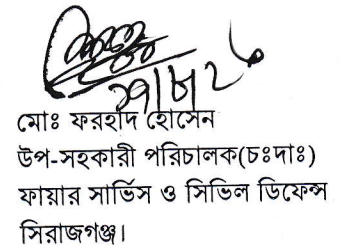 মোঃ ফরহাদ হোসেন
উপ-সহকারী পরিচালক(চঃদাঃ)
ফায়ার সার্ভিস ও সিভিল ডিফেন্স
সিরাজগঞ্জ।